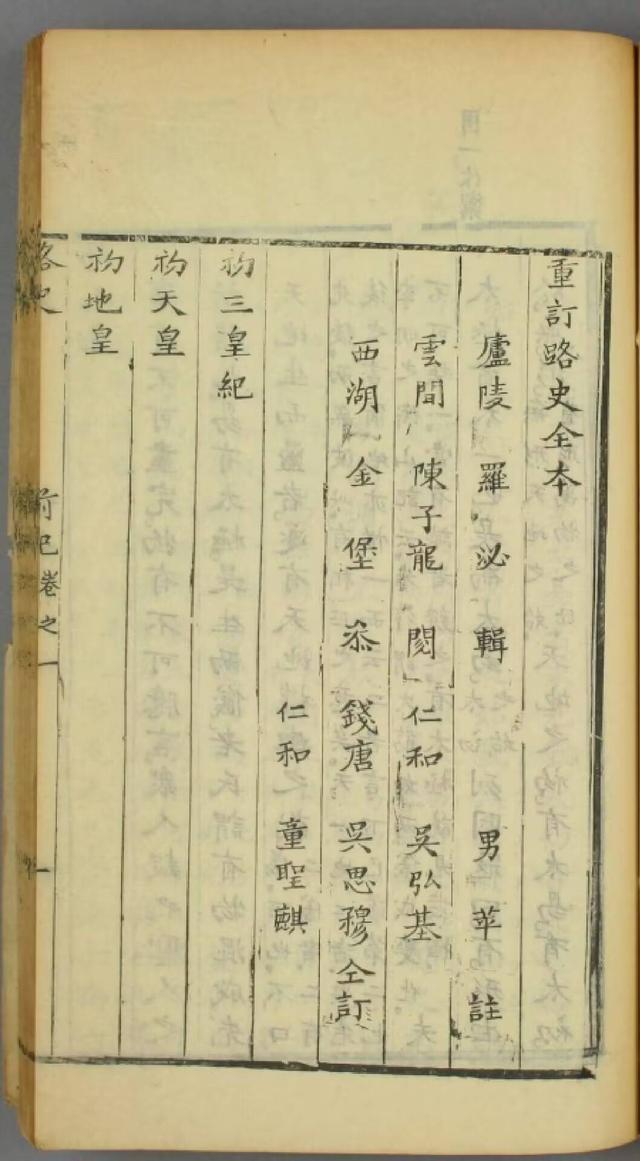 重訂路史全本
廬陵 羅泌 輯 男苹 註
雲間 陳子龍 閱 仁和 吳弘基
西湖 金堡 叅 錢唐 吳思穆仝訂
仁和 童聖麒
初三皇紀
初天皇
初地皇
路史 前紀卷之一 一